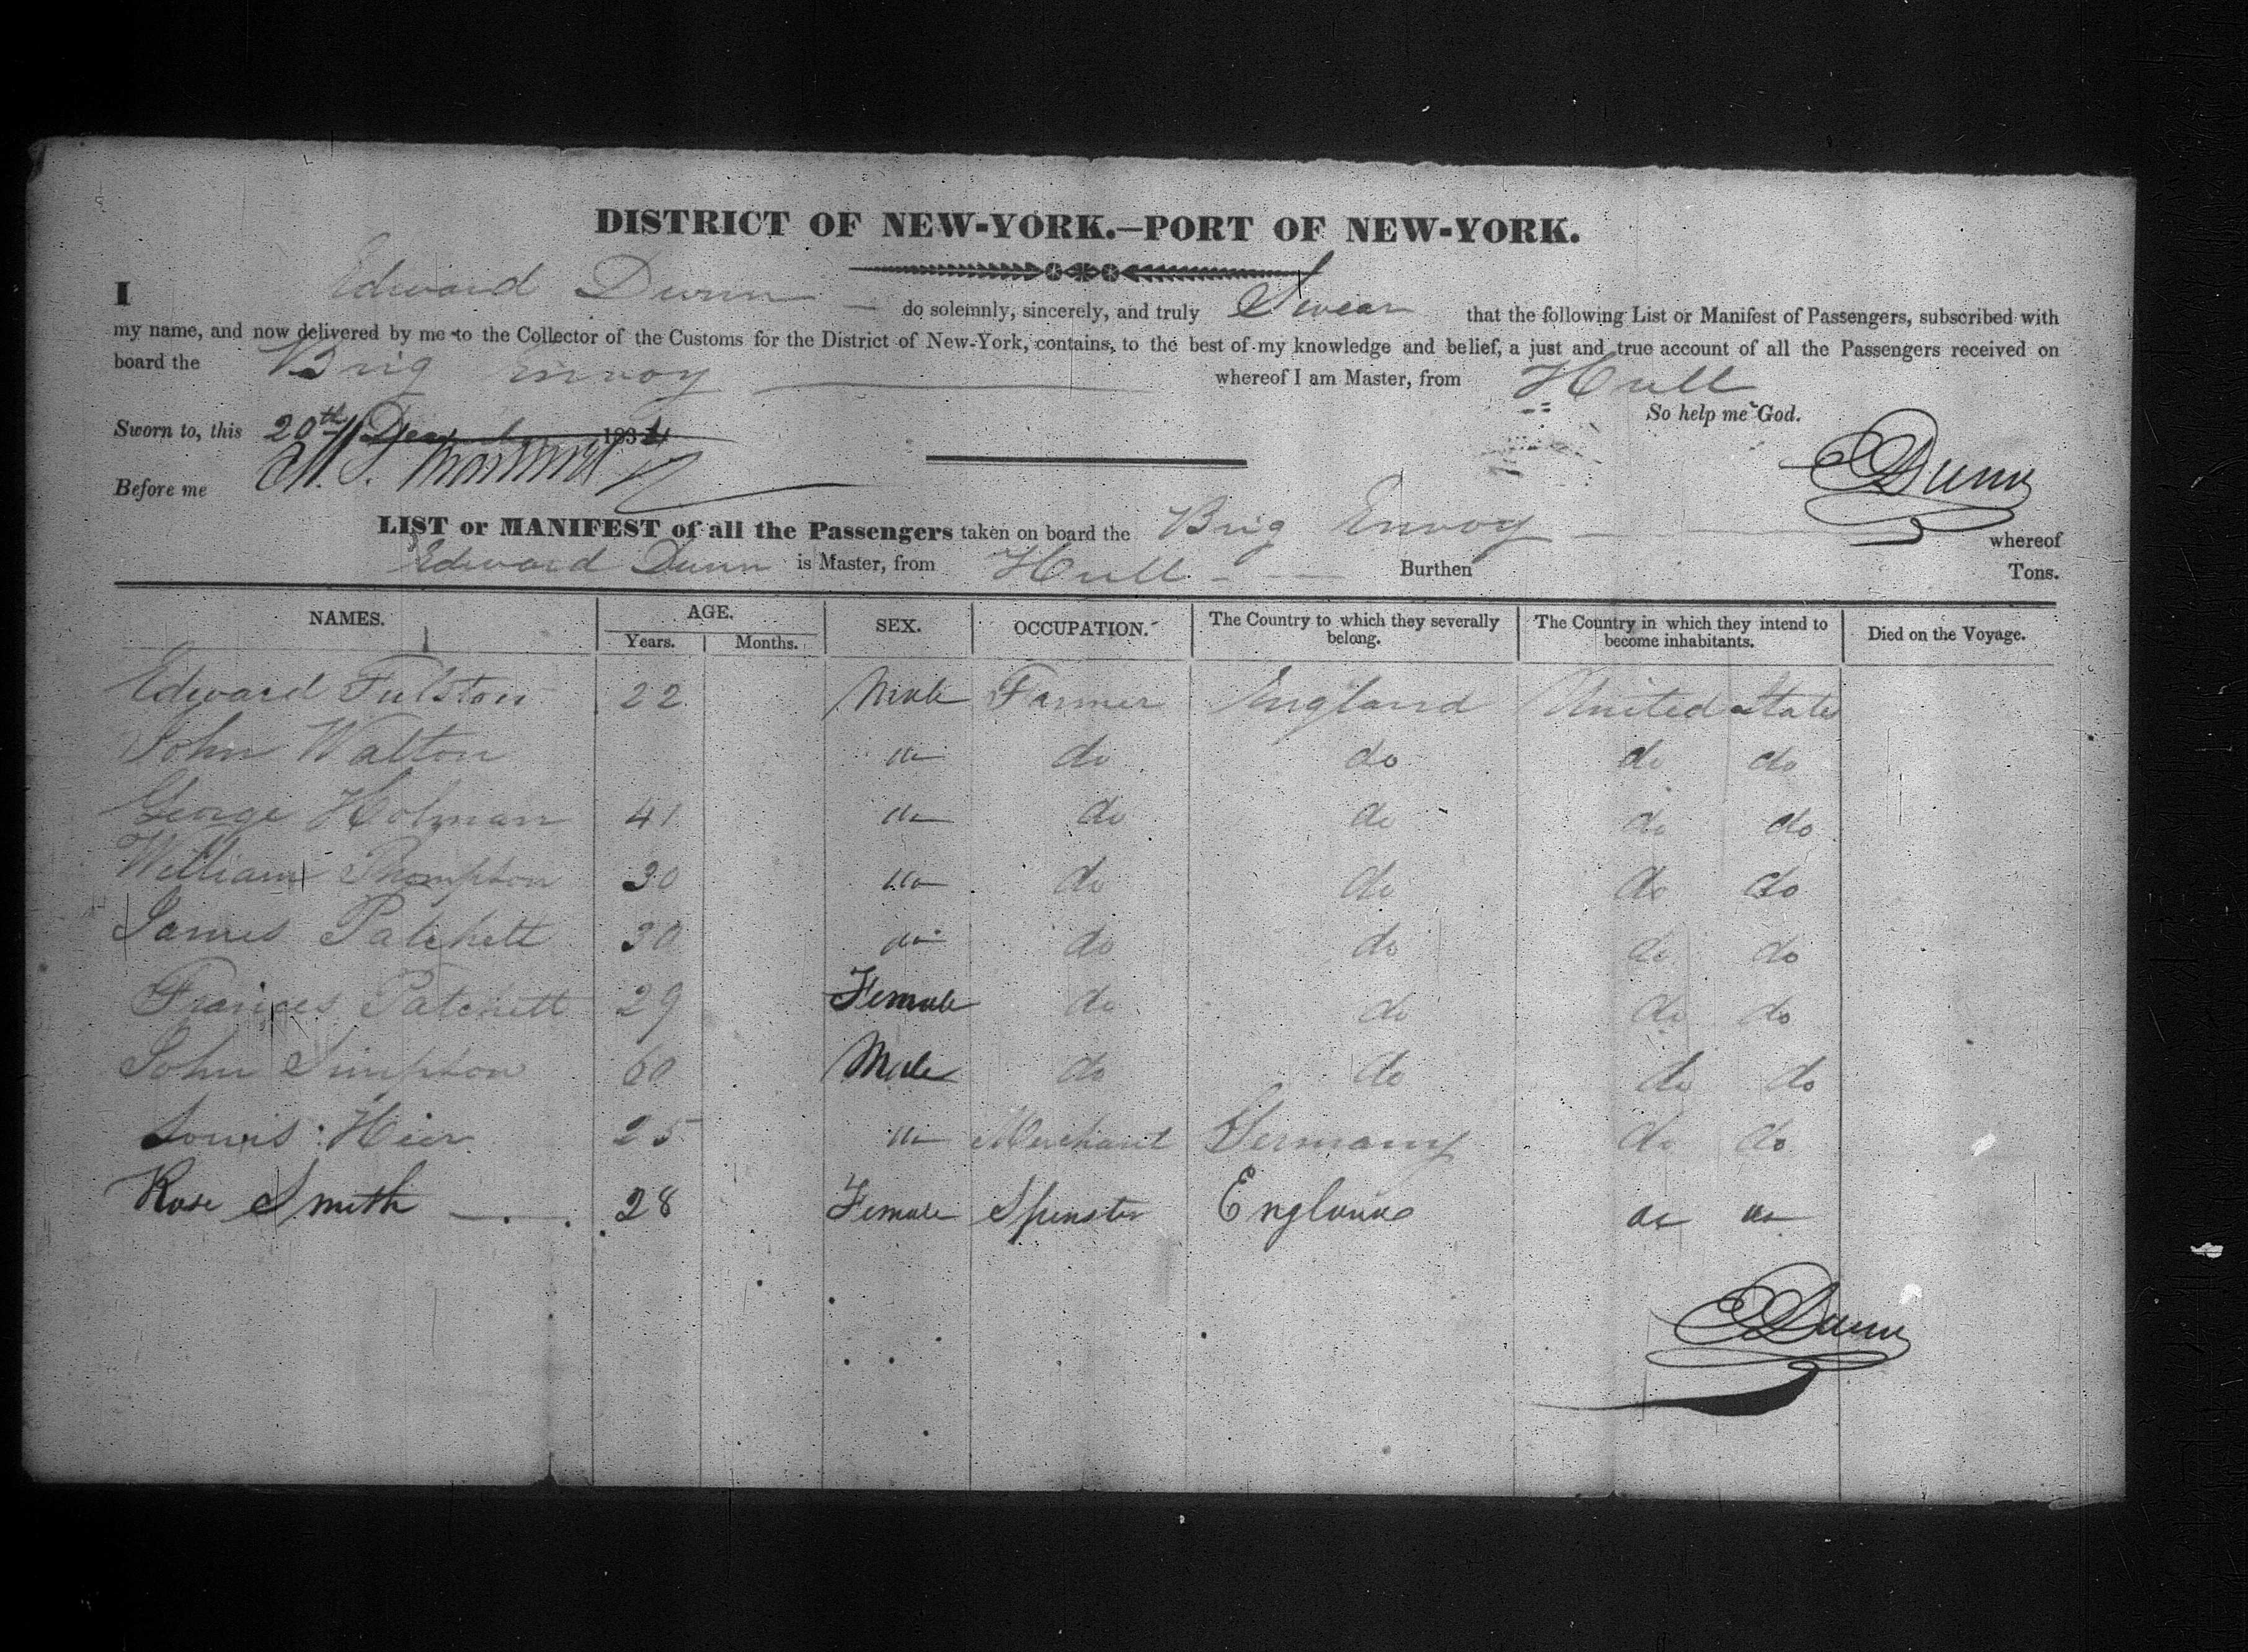 DISTRICT OF NEW-YORK.—PORT OF NEW-YORK.
I Edward Dunn do solemnly, sincerely, and truly Swear that the following List or Manifest of Passengers, subscribed with
my name, and now delivered by me to the Collector of the Customs for the District of New-York, contains, to the best of my knowledge and belief, a just and true account of all the Passengers received on
board the Brig Envoy whereof I am Master, from Hull
So help me God.
Sworn to, this 20th 183
E Dunn
Before me
LIST or MANIFEST of all the Passengers taken on board the Brig Envoy whereof
Edward Dunn is Master, from Hull Burthen Tons.
NAMES. AGE. SEX. OCCUPATION. The Country to which they severally belong. The Country in which they intend to become inhabitants. Died on the Voyage.
Years. Months.
Edward Fulston 22 Male Farmer England United States
John Walton do do do do
George Holman 41 do do do do
William Thompson 30 do do do do
James Patchett 30 do do do do
Frances Patchett 29 Female do do do do
John Simpson 60 Male do do do do
Louis Hier 25 Merchant Germany do do
Rose Smith 28 Female Spinster England
E Dunn